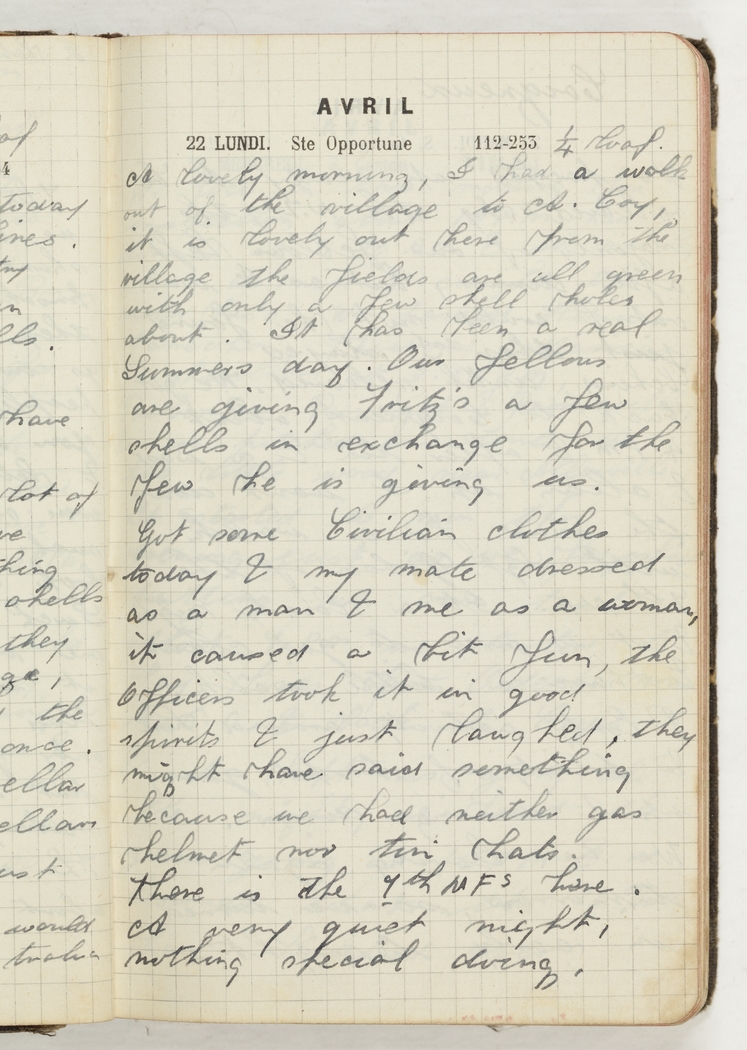 AVRIL
22 LUNDI. Ste Opportune 112-253 ¼ loaf.
A lovely morning, I had a walk
out of the village to A. Coy,
it is lovely out here from the
village the fields are all green
with only a few shell holes
about. It has been a real
Summers day. Our fellows
are giving Fritz's a few
shells in exchange for the
few he is giving us.
Got some Civilian clothes
today & my mate dressed
as a man & me as a woman,
it caused a bit fun, the
Officers took it in good
spirits & just laughed, they
might have said something
because we had neither gas
helmet nor tin hats.
There is the 7th N F s here.
A very quiet night,
nothing special doing.
today
4
lot of
have
thing
shells
they
the
once.
would